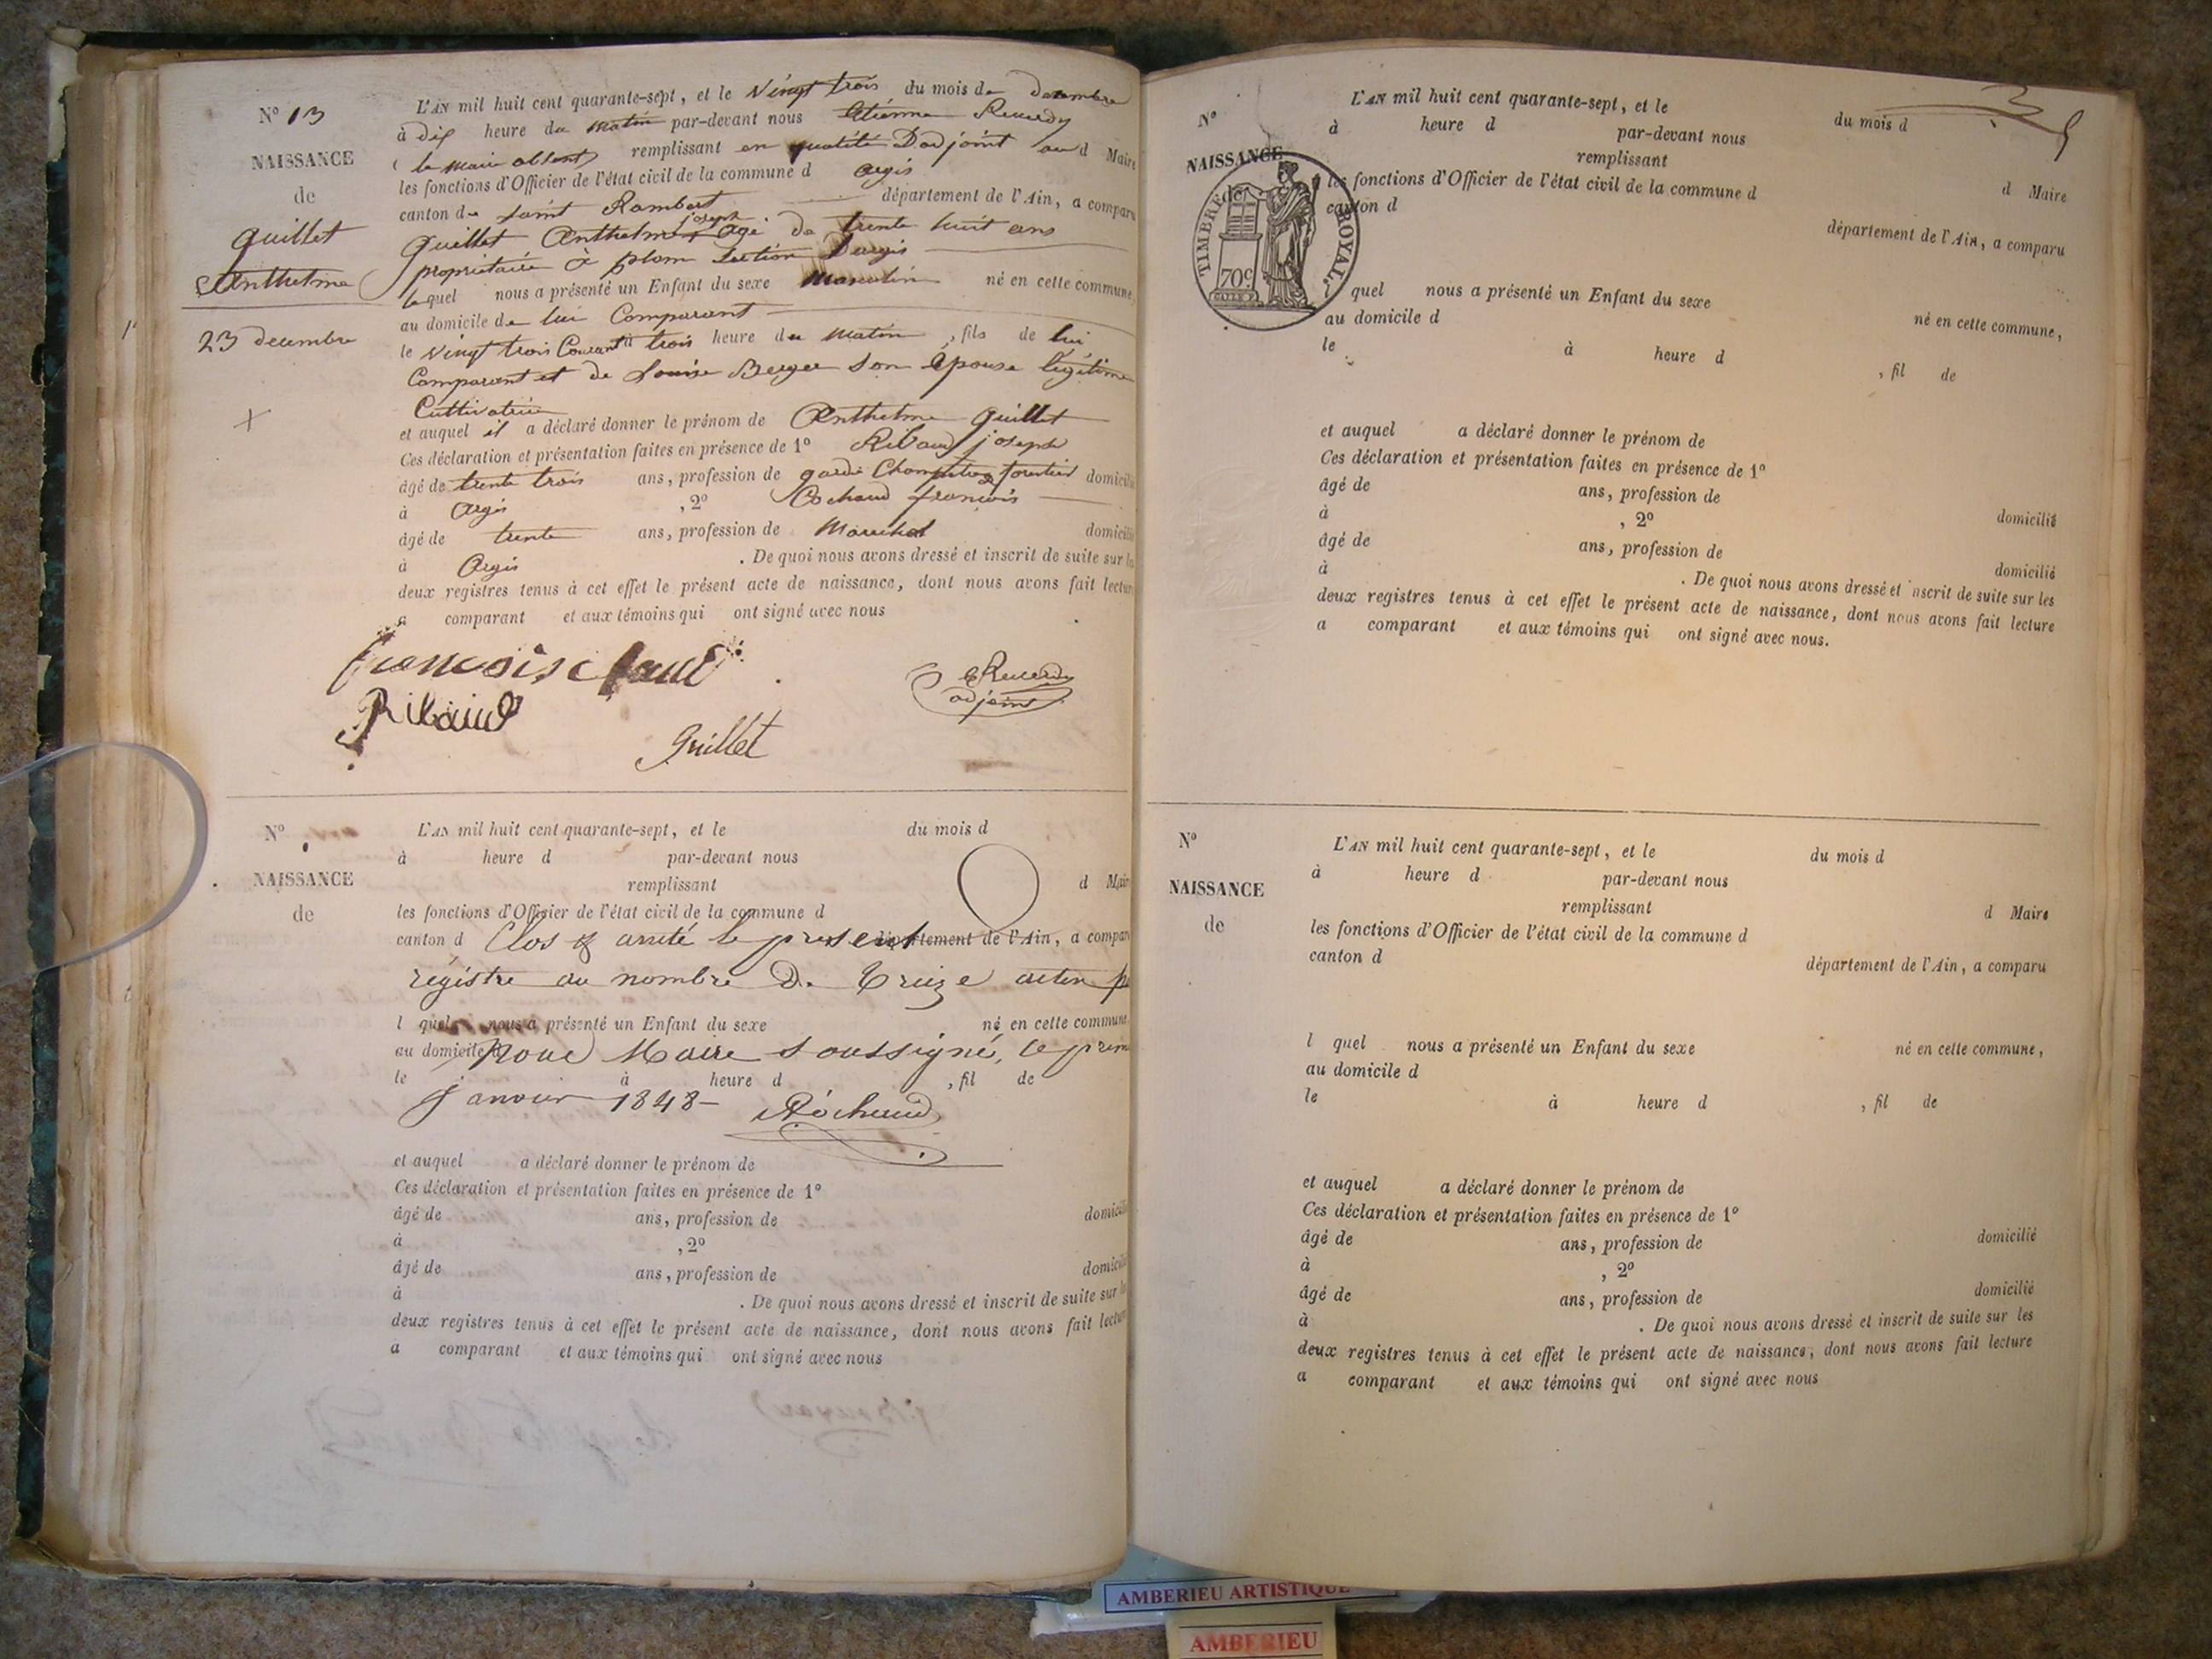 N° 13
NAISSANCE
de
Guillet
Anthelme
23 decembre
L'AN mil huit cent quarante-sept, et le vingt trois du mois de decembre
à dix heure du matin par-devant nous Etienne
le maire absent remplissant en qualité D'adjoint au d Maire
les fonctions d'Officier de l'état civil de la commune d argis
canton de Saint Rambert département de l'Ain, a comparu
Guillet Anthelme joseph agé de trente huit ans
propriétaire à plom section Dargis
lequel nous a présenté un Enfant du sexe Masculin né en cette commune,
au domicile de lui Comparant
le vingt trois Courant à trois heure du matin, fils de lui
Comparant et de Louise Berger son épouse légitime
Cultivatrice
et auquel il a déclaré donner le prénom de Anthelme Guillet
Ces déclaration et présentation faites en présence de 1° Ribaud joseph
âgé de trente trois ans, profession de garde Champetre forestier domicilié
à Argis, 2° francois
âgé de trente ans, profession de Marechal domicilié
à Argis. De quoi nous avons dressé et inscrit de suite sur les
deux registres tenus à cet effet le présent acte de naissance, dont nous avons fait lecture
a comparant et aux témoins qui ont signé avec nous
francois
Ribaud
adjoint
Guillet
N°
NAISSANCE
de
L'AN mil huit cent quarante-sept, et le du mois d
à heure d par-devant nous
remplissant d Maire
les fonctions d'Officier de l'état civil de la commune d
canton d département de l'Ain, a comparu
Clos & arrêté le present
régistre au nombre de treize actes
l quel nous a présenté un Enfant du sexe né en cette commune
au domicile d
Nous Maire soussigné, le
le à heure d , fil de
janvier 1848
et auquel a déclaré donner le prénom de
Ces déclaration et présentation faites en présence de 1°
âgé de ans, profession de domicilié
à , 2°
âgé de ans, profession de domicilié
à . De quoi nous avons dressé et inscrit de suite sur les
deux registres tenus à cet effet le présent acte de naissance, dont nous avons fait lecture
a comparant et aux témoins qui ont signé avec nous
N°
NAISSANCE
de
TIMBRE ROYAL
70 c
L'AN mil huit cent quarante-sept, et le du mois d
à heure d par-devant nous
remplissant d Maire
les fonctions d'Officier de l'état civil de la commune d
canton d département de l'Ain, a comparu
l quel nous a présenté un Enfant du sexe né en cette commune,
au domicile d
le à heure d , fil de
et auquel a déclaré donner le prénom de
Ces déclaration et présentation faites en présence de 1°
âgé de ans, profession de
à , 2° domicilié
âgé de ans, profession de
à domicilié
. De quoi nous avons dressé et inscrit de suite sur les
deux registres tenus à cet effet le présent acte de naissance, dont nous avons fait lecture
a comparant et aux témoins qui ont signé avec nous.
N°
NAISSANCE
de
L'AN mil huit cent quarante-sept, et le du mois d
à heure d par-devant nous
remplissant d Maire
les fonctions d'Officier de l'état civil de la commune d
canton d département de l'Ain, a comparu
l quel nous a présenté un Enfant du sexe né en cette commune,
au domicile d
le à heure d , fil de
et auquel a déclaré donner le prénom de
Ces déclaration et présentation faites en présence de 1°
âgé de ans, profession de domicilié
à , 2°
âgé de ans, profession de domicilié
à . De quoi nous avons dressé et inscrit de suite sur les
deux registres tenus à cet effet le présent acte de naissance, dont nous avons fait lecture
a comparant et aux témoins qui ont signé avec nous
AMBERIEU ARTISTIQUE
AMBERIEU